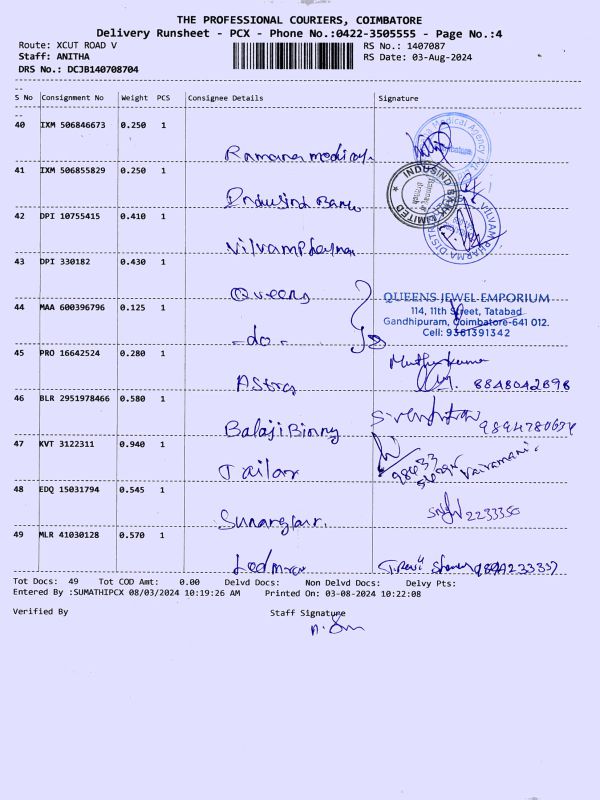 THE PROFESSIONAL COURIERS, COIMBATORE
Delivery Runsheet - PCX - Phone No.:0422-3505555 - Page No.:4
Route: XCUT ROAD V RS No.: 1407087
Staff: ANITHA RS Date: 03-Aug-2024
DRS No.: DCJB140708704
S No Consignment No Weight PCS Consignee Details Signature
40 IXM 506846673 0.250 1
Ramana medical
41 IXM 506855829 0.250 1
INDUSIND BANK LIMITED
Indusind Bank
42 DPI 10755415 0.410 1
VILVAM PHARMA DISTR
Vilvam Pharma
43 DPI 330182 0.430 1
Queens
QUEENS JEWEL EMPORIUM
44 MAA 600396796 0.125 1
114, 11th Street, Tatabad
Gandhipuram, Coimbatore-641 012.
Cell: 9361391342
-do-
45 PRO 16642524 0.280 1
Muthukumar
Astra 8848042898
46 BLR 2951978466 0.580 1
Balaji Binny 9894780674
47 KVT 3122311 0.940 1
Tailor Vairamani.
48 EDQ 15031794 0.545 1
2233350
49 MLR 41030128 0.570 1
Tot Docs: 49 Tot COD Amt: 0.00 Delvd Docs: Non Delvd Docs: Delvy Pts:
Entered By :SUMATHIPCX 08/03/2024 10:19:26 AM Printed On: 03-08-2024 10:22:08
Verified By Staff Signature